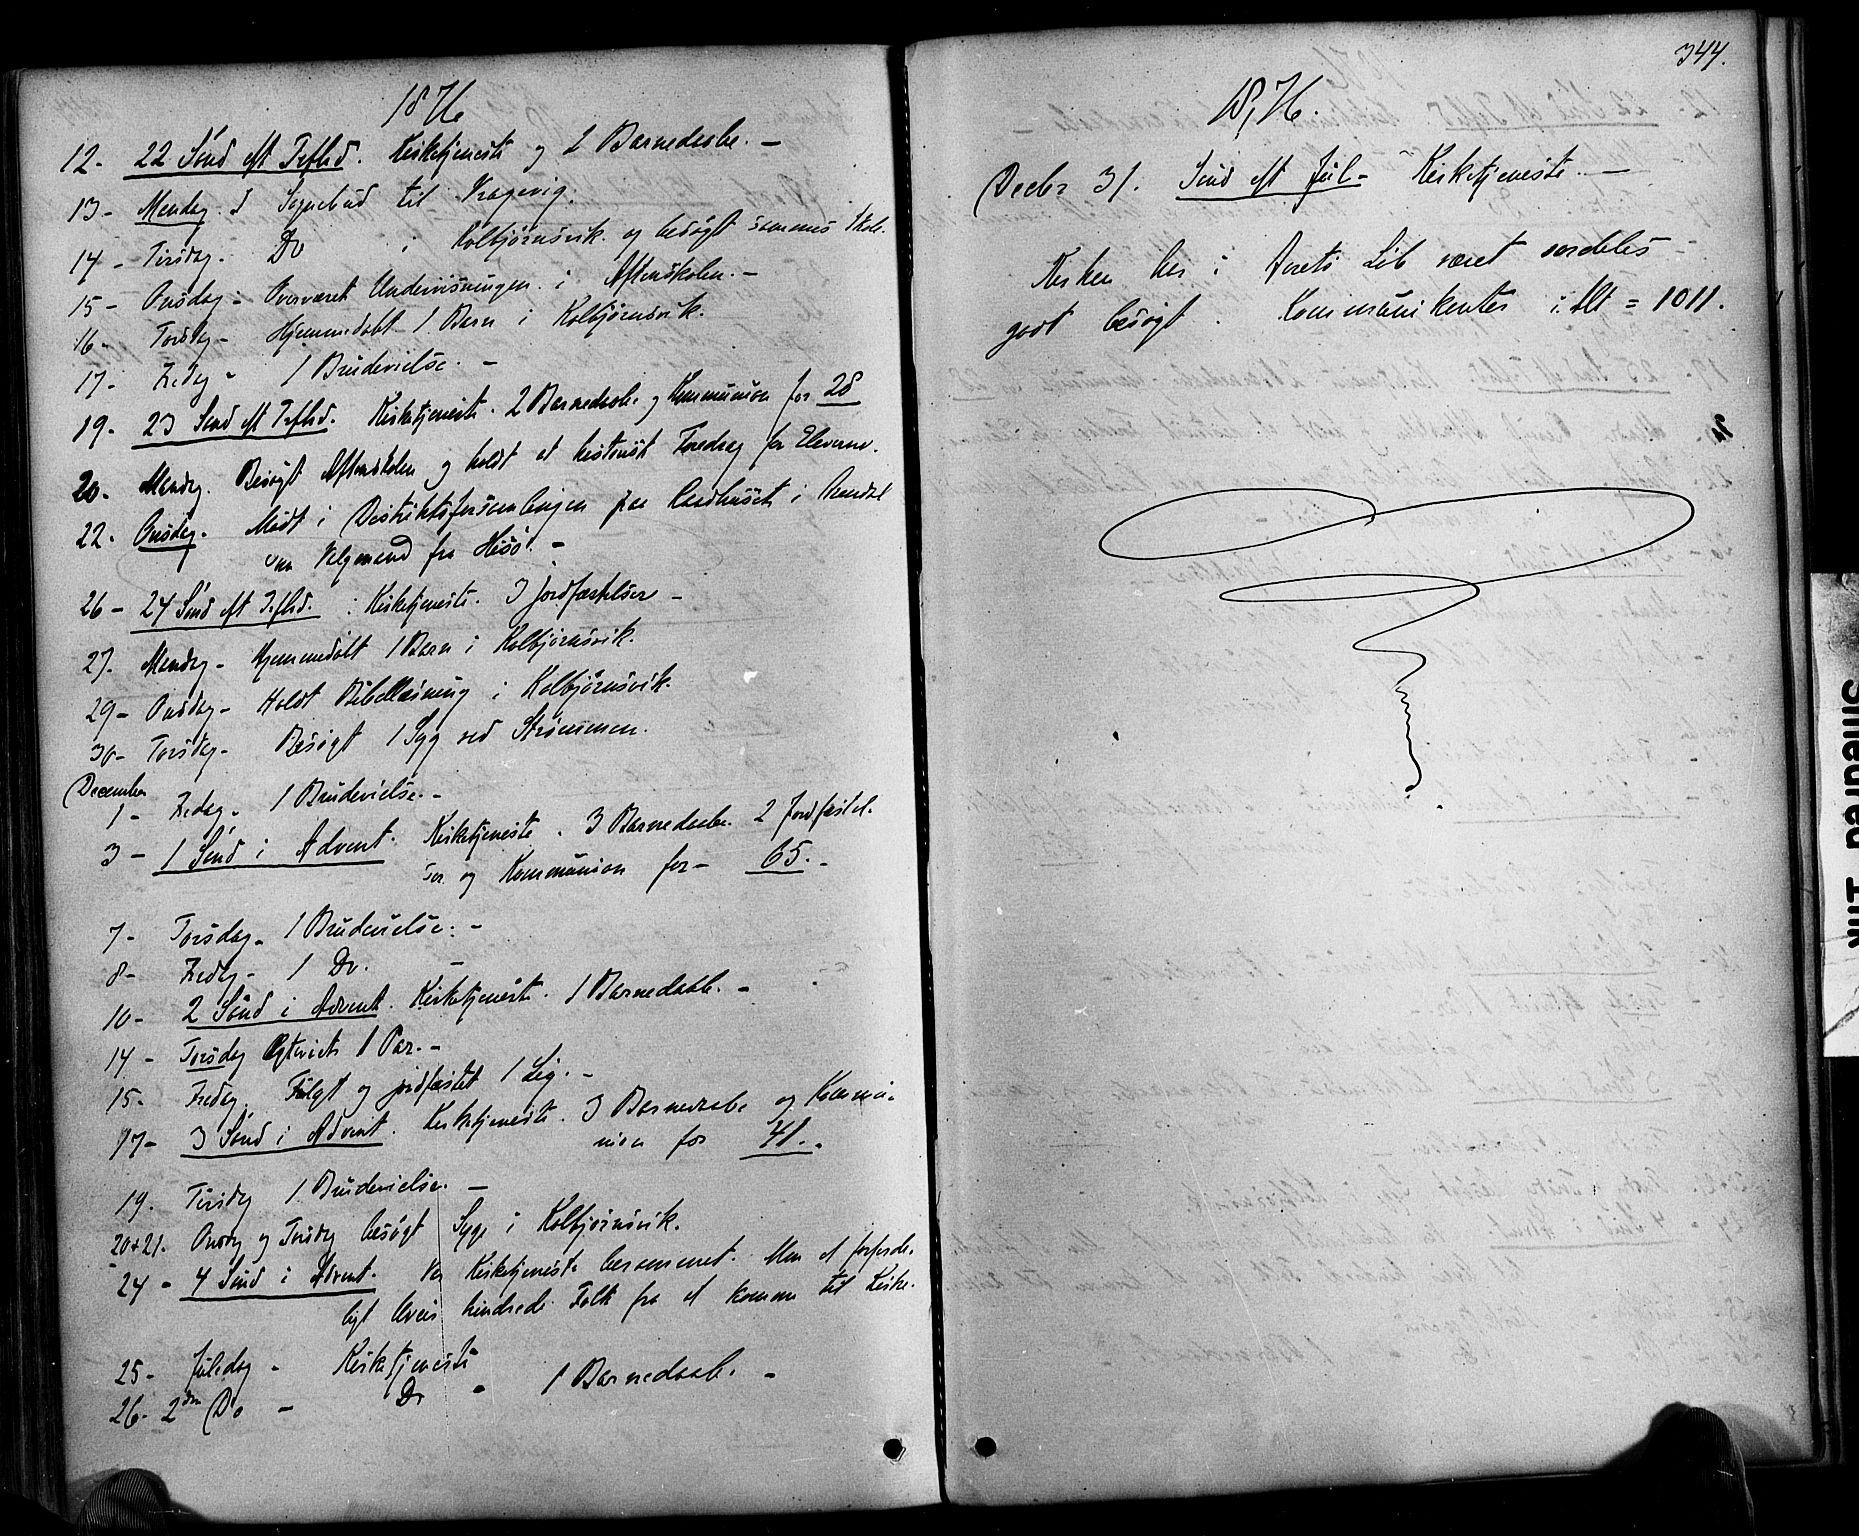 1876
12. 22 Sönd eft Trefhed. Kirketjeneste og 2 Barnedaabe. -
13- Mandag. I Sognebüd til Kragevig.
14- Tirsdag. Do i Kolbjørnsvik og besøgt sammes Skole.
15- Onsdag. Overværet Undervisningen i Aftenskolen. -
16- Torsdag- Hjemmedøbt 1 Barn i Kolbjørnsvik.
17- Fredag- 1 Brudevielse. -
19. 23 Sönd eft Trefhd. Kirketjeneste. 2 Barnedaabe og Kommunion for 28
20. Mandag. Besøgt Aftenskolen og holdt et historisk Foredrag for Eleverne.
22. Onsdag. Mødt i Distriktsforsamlingen paa Raadhuset i Arendal
som Valgmand fra Hisø. -
26- 24 Sönd eft Trefhd. Kirketjeneste. 3 Jordfæstelser -
27. Mandag- Hjemmedøbt 1 Barn i Kolbjørnsvik.
29- Onsdag- Holdt Bibellæsning i Kolbjørnsvik.
30- Torsdag- Besøgt 1 Syg ved Strømmen.
December
1- Fredag. 1 Brudevielse. -
3- 1 Sönd i Advent. Kirketjeneste. 3 Barnedaabe. 2 Jordfæstel-
ser og Kommunion for- 65. -
7- Torsdag. 1 Brudevielse. -
8- Fredag- 1 Do. -
10- 2 Sönd i Advent. Kirketjeneste. 1 Barnedaab. -
14- Torsdag Egteviet 1 Par. -
15. Fredag. Fulgt og jordfæstet 1 Lig. -
17- 3 Sönd i Advent. Kirketjeneste. 3 Barnedaabe og Kommu-
nion for 41. -
19. Tirsdag 1 Brudevielse. -
20+21. Onsdag og Torsdag besøgt Syge i Kolbjørnsvik.
24- 4 Sönd i Advent. Var Kirketjeneste berammet. Men et forfærde-
ligt Uveir hindrede Folk fra at komme til Kirke.
25- Juledag - Kirketjeneste
26- 2den Do - Do - 1 Barnedaab. -
344.
1876.
Decbr 31. Sönd eft Jül- Kirketjeneste. -
Kirken har i Aarets Løb været særdeles
godt besøgt. Kommunikanter i Alt = 1011.